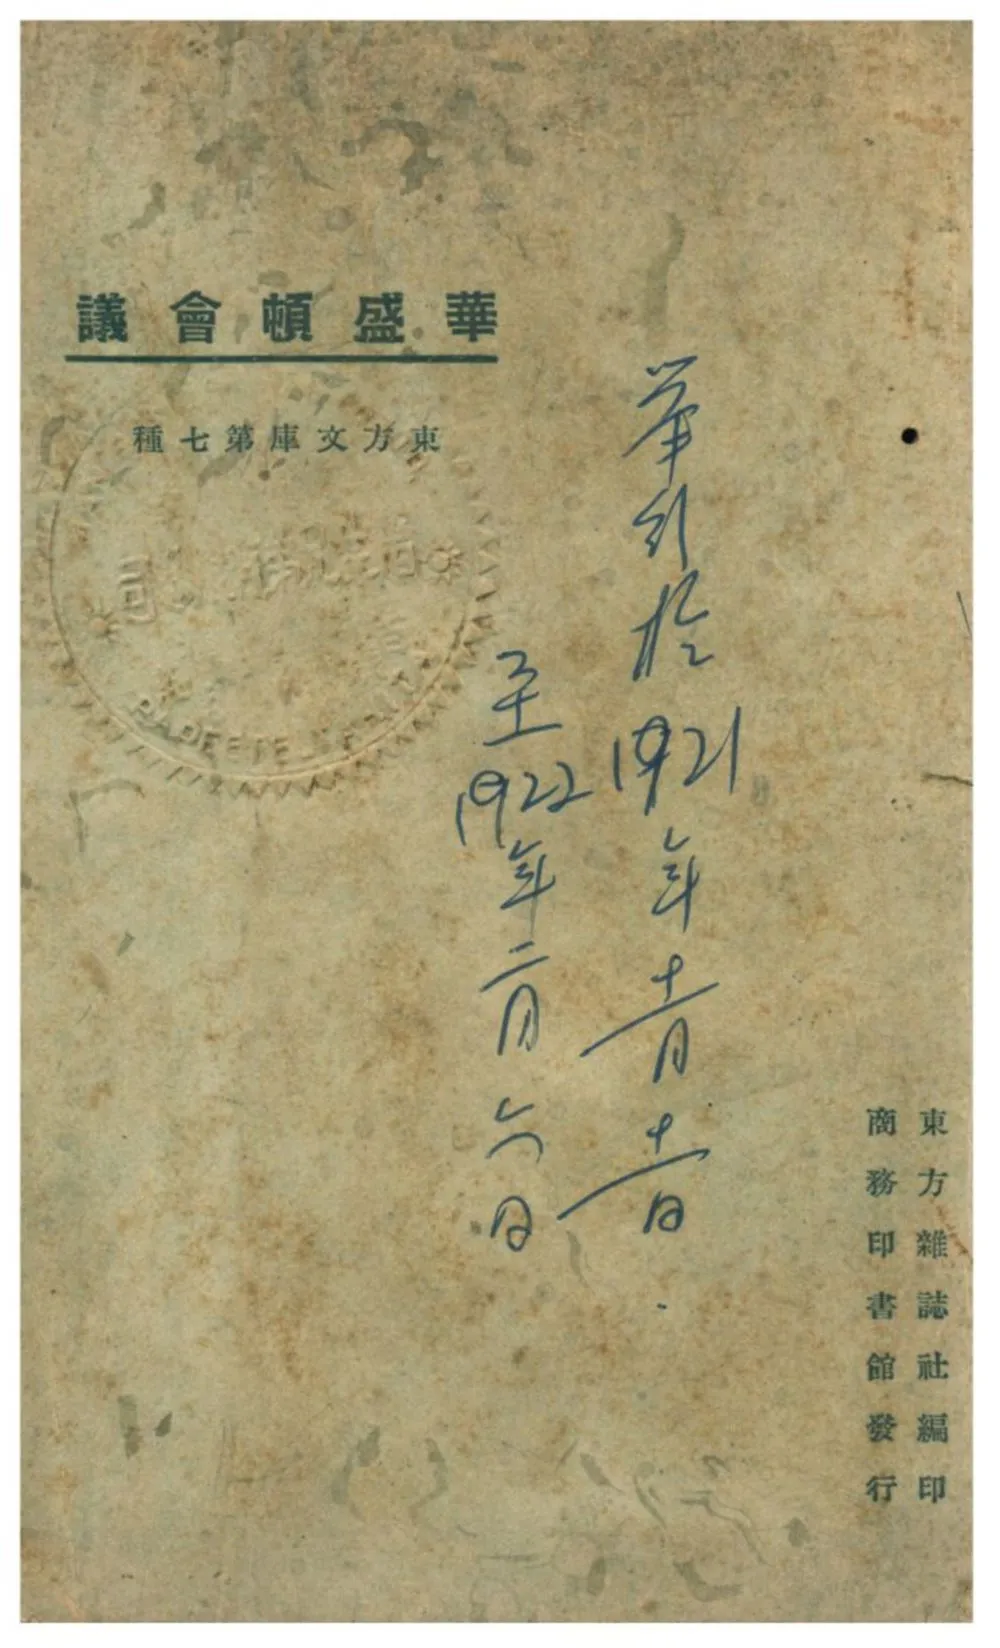 華盛頓會議
東方文庫第七種
舉行於1921年十一月十一日
至1922年二月六日
東方雜誌社編印
商務印書館發行